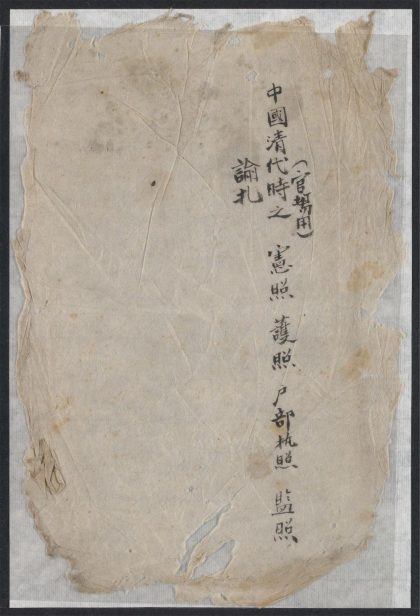 (官場用)
中國清代時之 憲照 護照 户部执照 監照
諭札